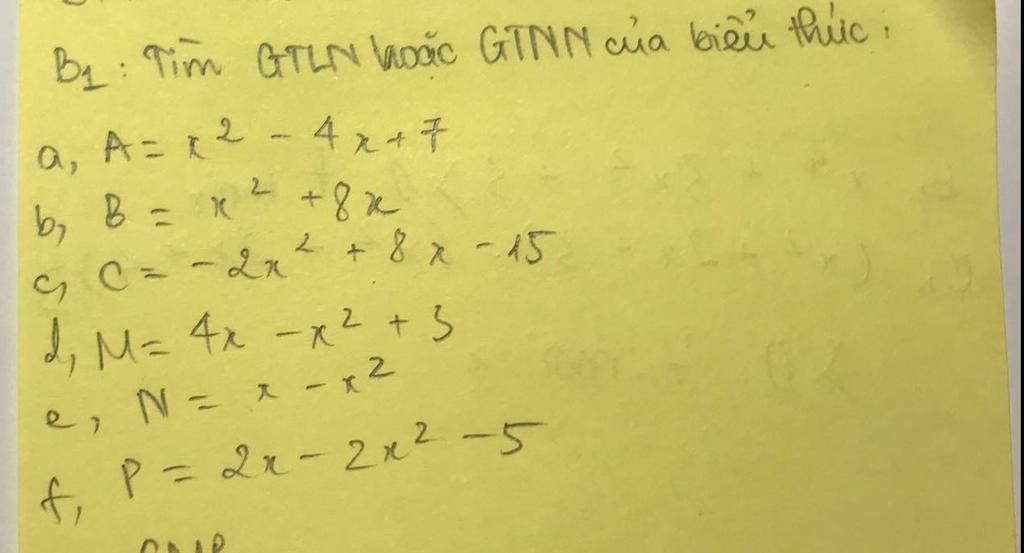 B1: Tìm GTLN hoặc GTNN của biểu thức:
a, A = x² - 4x + 7
b, B = x² + 8x
c, C = -2x² + 8x - 15
d, M = 4x - x² + 3
e, N = x - x²
f, P = 2x - 2x² - 5